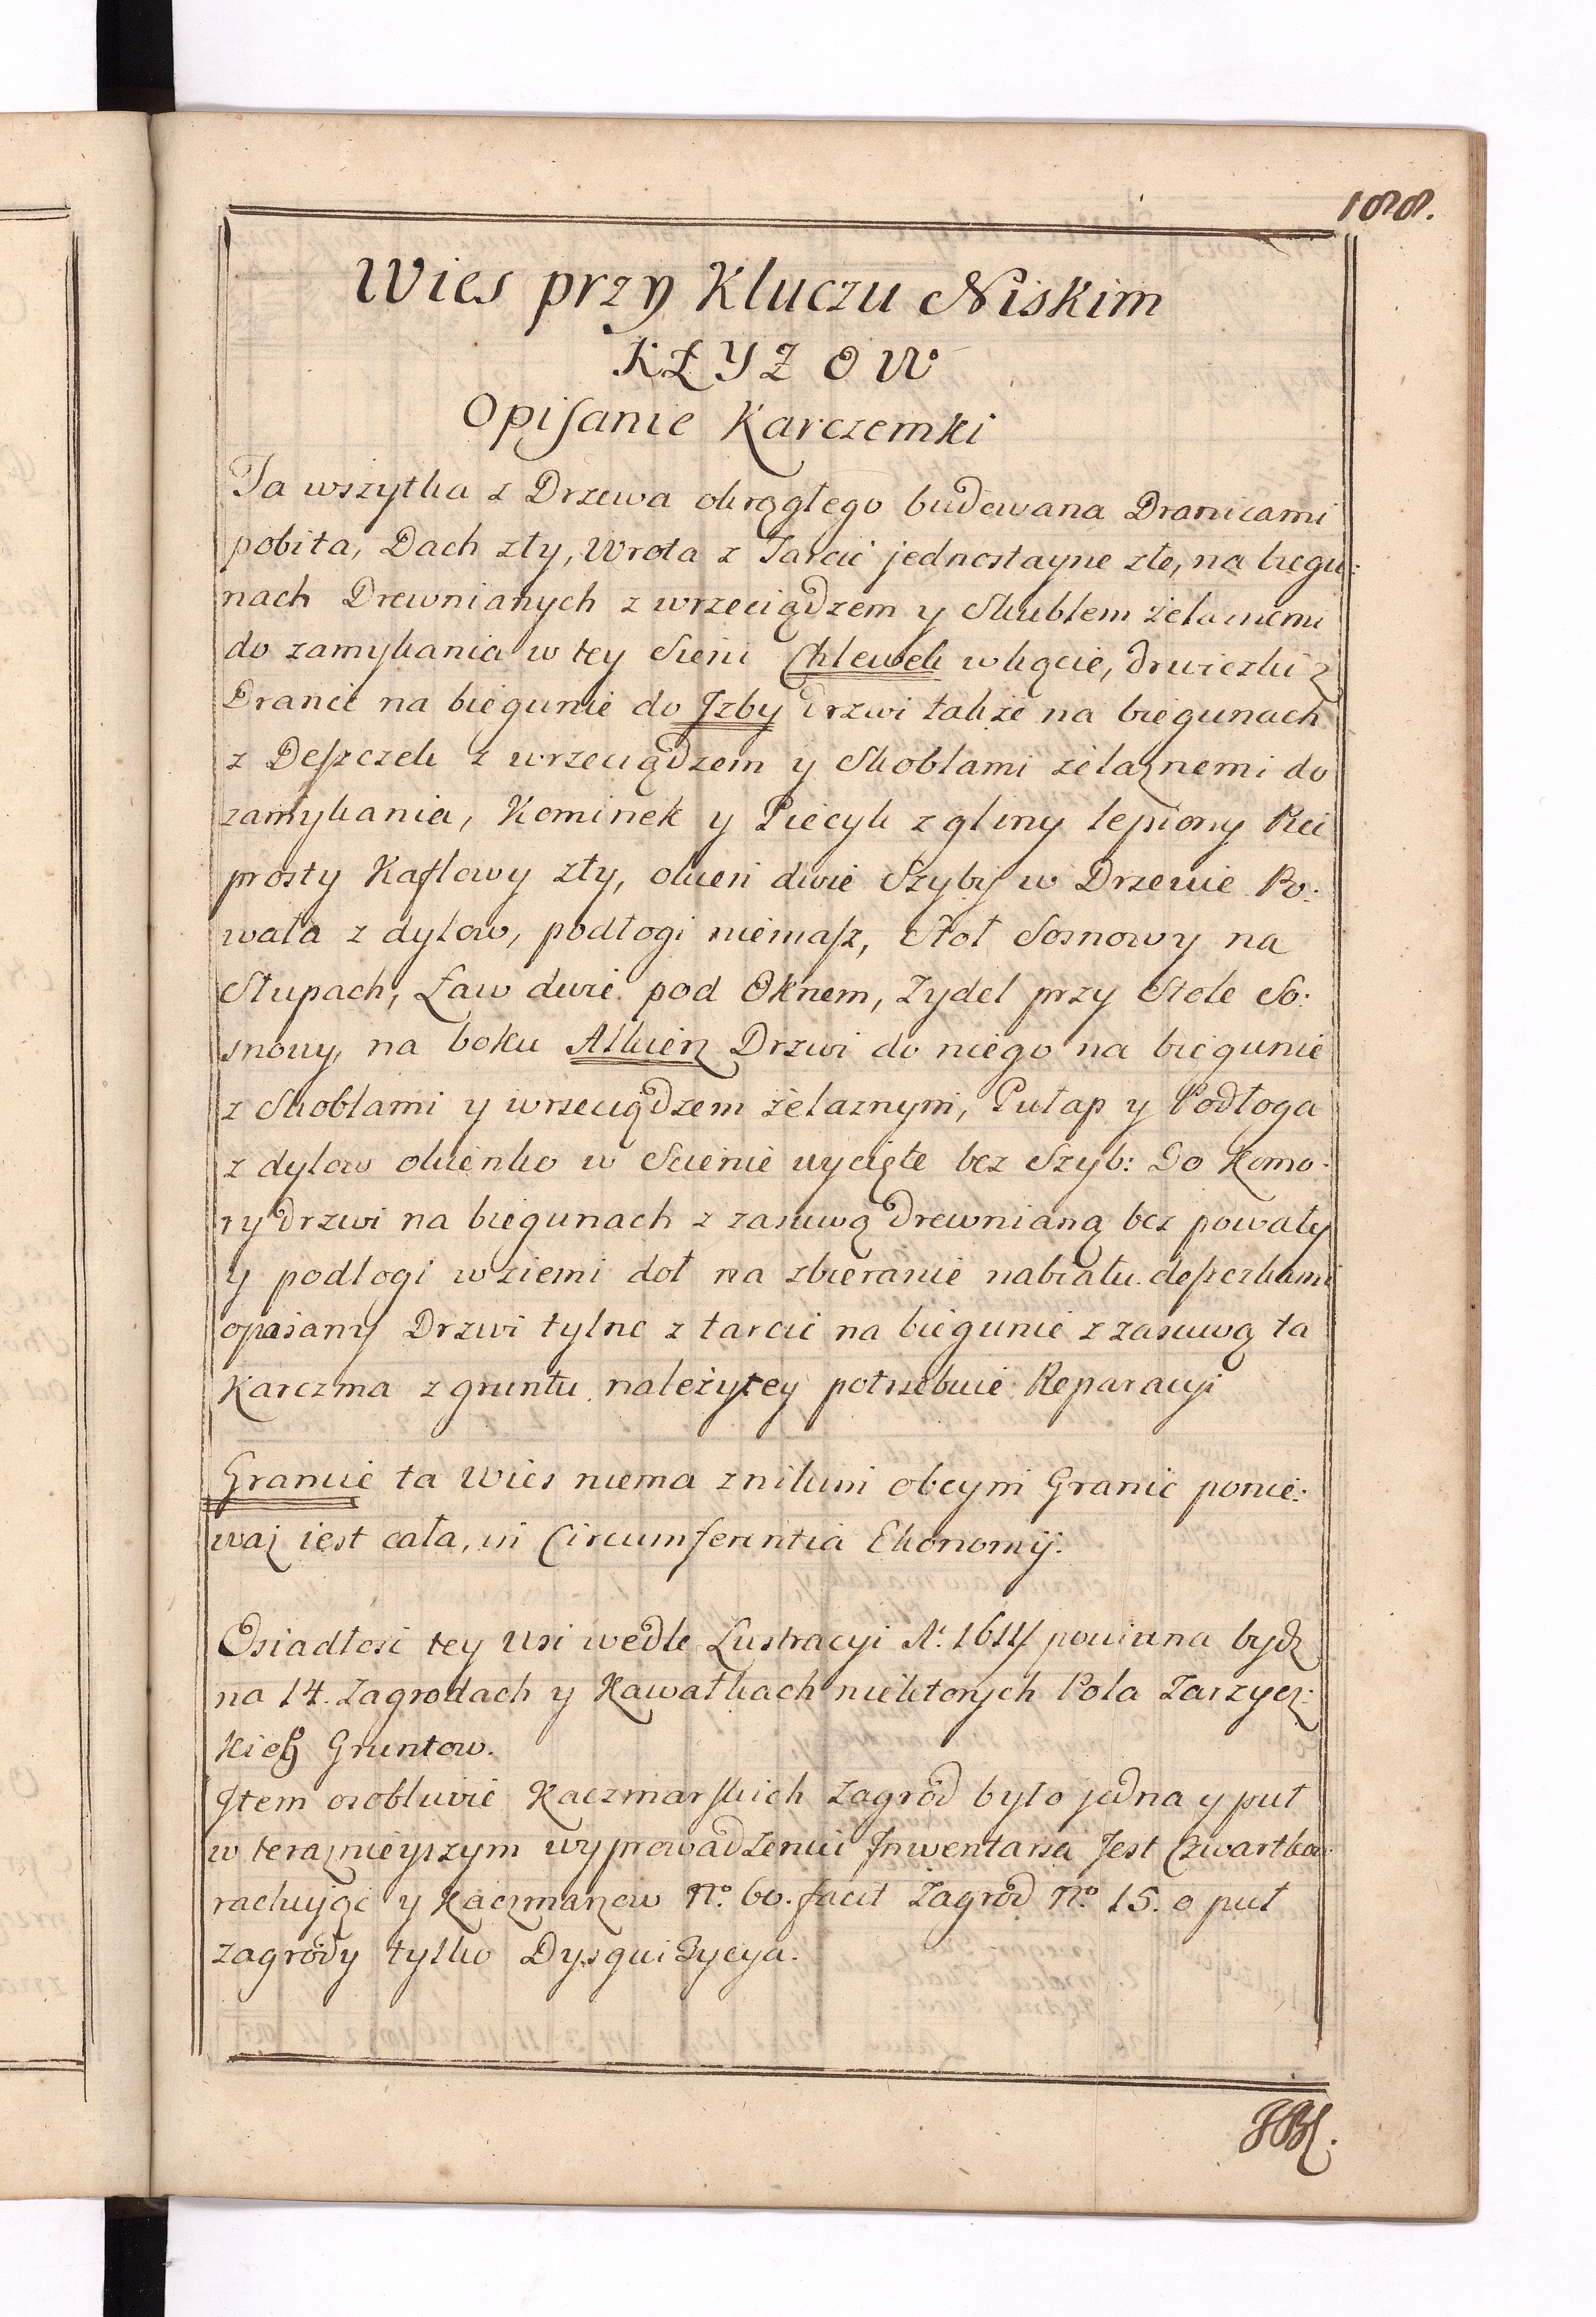 188.
Wies przy Kluczu Niskim
KŁYZOW
Opisanie Karczemki
Ta wszytka z Drzewa okrągłego budowana Dranicami
pobita, Dach zły, Wrota z Tarcic jednostayne złe, na biegu:
nach Drewnianych z wrzeciądzem y Skublem żelaznemi
do zamykania w tey Sieni Chlewek w kącie, drwiczki z
Dranic na biegunie do Jzby drzwi takze na biegunach
z Deszczek z wrzeciądzem y Skoblami żelaznemi do
zamykania, Kominek y Piecyk z gliny lepiony Piec
prosty Kaflowy zły, okien dwie Szyby w Drzewie Po:
wała z dylow, podłogi niemasz, Stoł Sosnowy na
Słupach, Ław dwie pod Oknem, Zydel przy Stole So:
snowy, na boku Alkierz Drzwi do niego na biegunie
z Skoblami y wrzeciądzem żelaznym, Pułap y Podłoga
z dylow okienko w Scienie wycięte bez Szyb: Do Komo:
ry drzwi na biegunach z zasuwą drewnianą bez powały
y podłogi w ziemi doł na zbieranie nabiału deszczkami
opasany Drzwi tylne z tarcic na biegunie z zasuwą ta
Karczma z gruntu należytey potrzebuie Reparacyi
Granic ta Wies niema z nikim obcym Granic ponie:
waz iest cała, in Circumferentia Ekonomij.
Osiadłosc tey Wsi wedle Lustracyi A: 1611 powinna bydz
na 14. Zagrodach y Kawałkach niektorych Pola Zarzyc:
kich Gruntow.
Jtem osobliwie Kaczmarskich Zagród było jedna y puł
w teraznieyszym wyprowadzeniu Jnwentarza Jest Czwartkow
rachuiąc y Kaczmarzow No. 60. facit Zagród No. 15. o puł
zagródy tylko Dysquizycya.